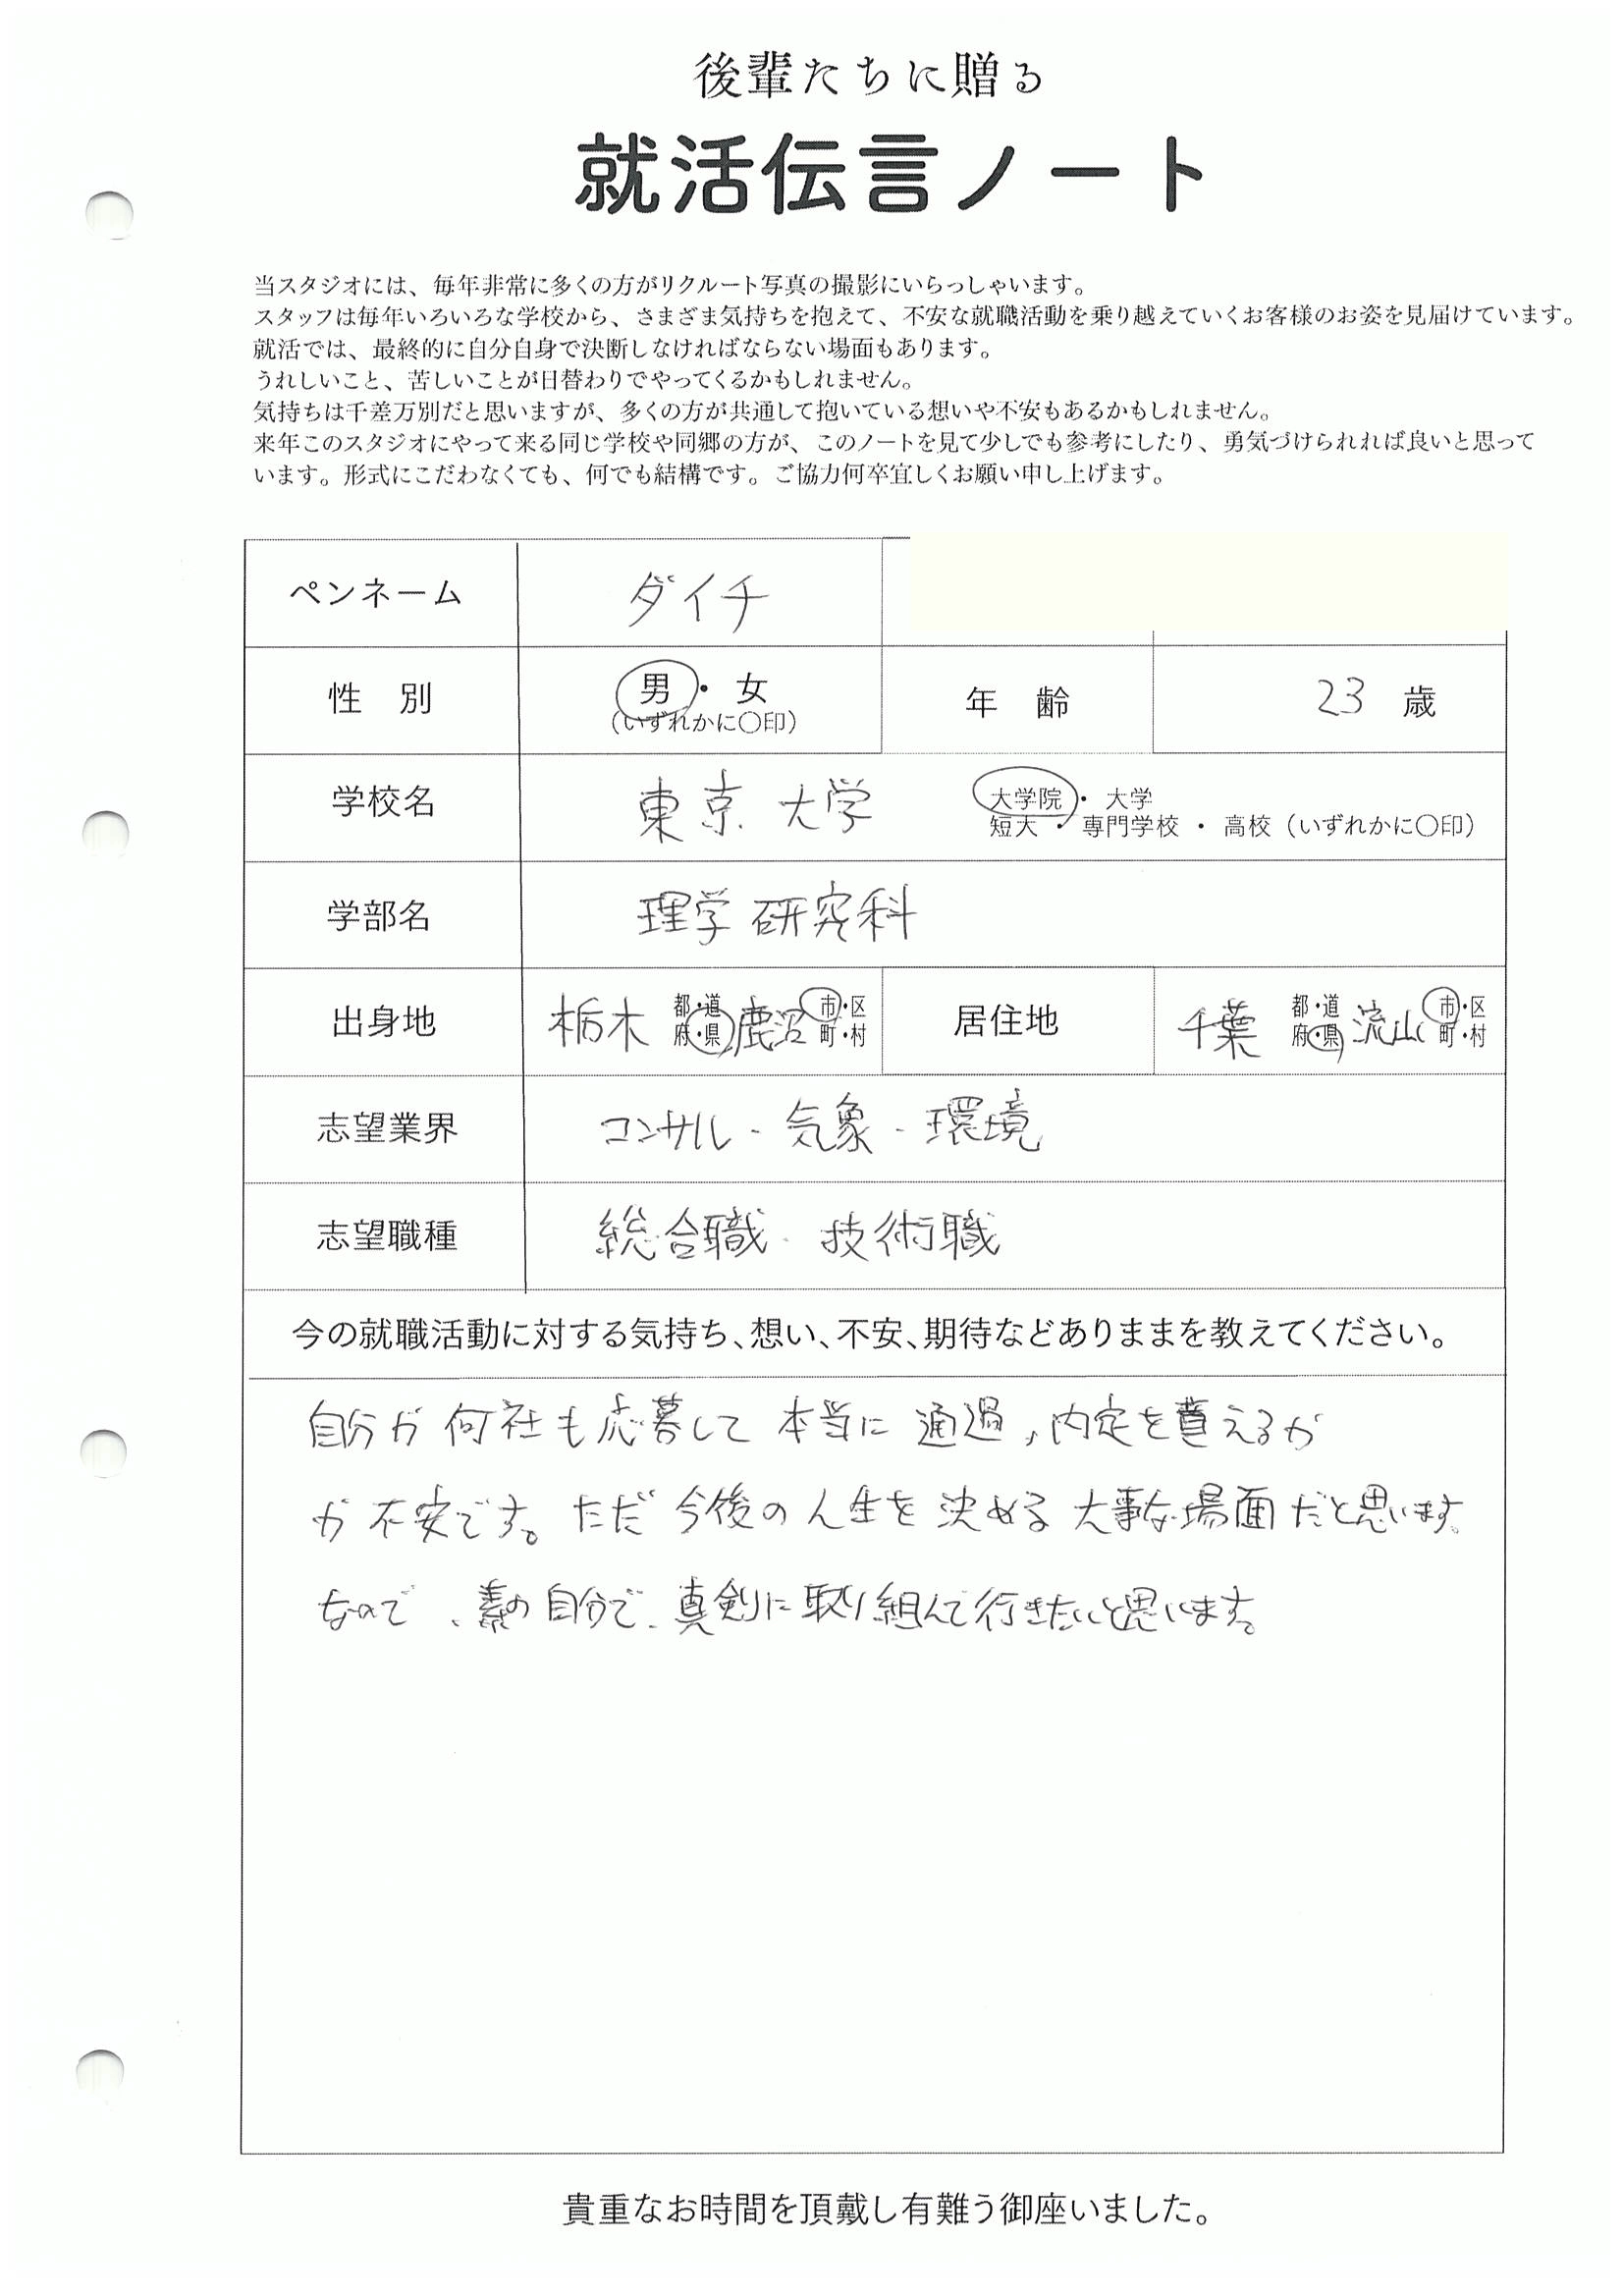 後輩たちに贈る
就活伝言ノート
当スタジオには、毎年非常に多くの方がリクルート写真の撮影にいらっしゃいます。
スタッフは毎年いろいろな学校から、さまざま気持ちを抱えて、不安な就職活動を乗り越えていくお客様のお姿を見届けています。
就活では、最終的に自分自身で決断しなければならない場面もあります。
うれしいこと、苦しいことが日替わりでやってくるかもしれません。
気持ちは千差万別だと思いますが、多くの方が共通して抱いている想いや不安もあるかもしれません。
来年このスタジオにやって来る同じ学校や同郷の方が、このノートを見て少しでも参考にしたり、勇気づけられれば良いと思って
います。形式にこだわなくても、何でも結構です。ご協力何卒宜しくお願い申し上げます。
ペンネーム ダイチ
性 別 男・女 (いずれかに〇印) 年 齢 23 歳
学校名 東京大学 大学院・大学
短大・専門学校・高校(いずれかに〇印)
学部名 理学研究科
出身地 栃木 都・道府・県 鹿沼 市・区町・村 居住地 千葉 都・道府・県 流山 市・区町・村
志望業界 コンサル・気象・環境
志望職種 総合職・技術職
今の就職活動に対する気持ち、想い、不安、期待などありままを教えてください。
自分が何社も応募して本当に通過、内定を貰えるか
が不安です。ただ今後の人生を決める大事な場面だと思います。
なので、素の自分で、真剣に取り組んで行きたいと思います。
貴重なお時間を頂戴し有難う御座いました。